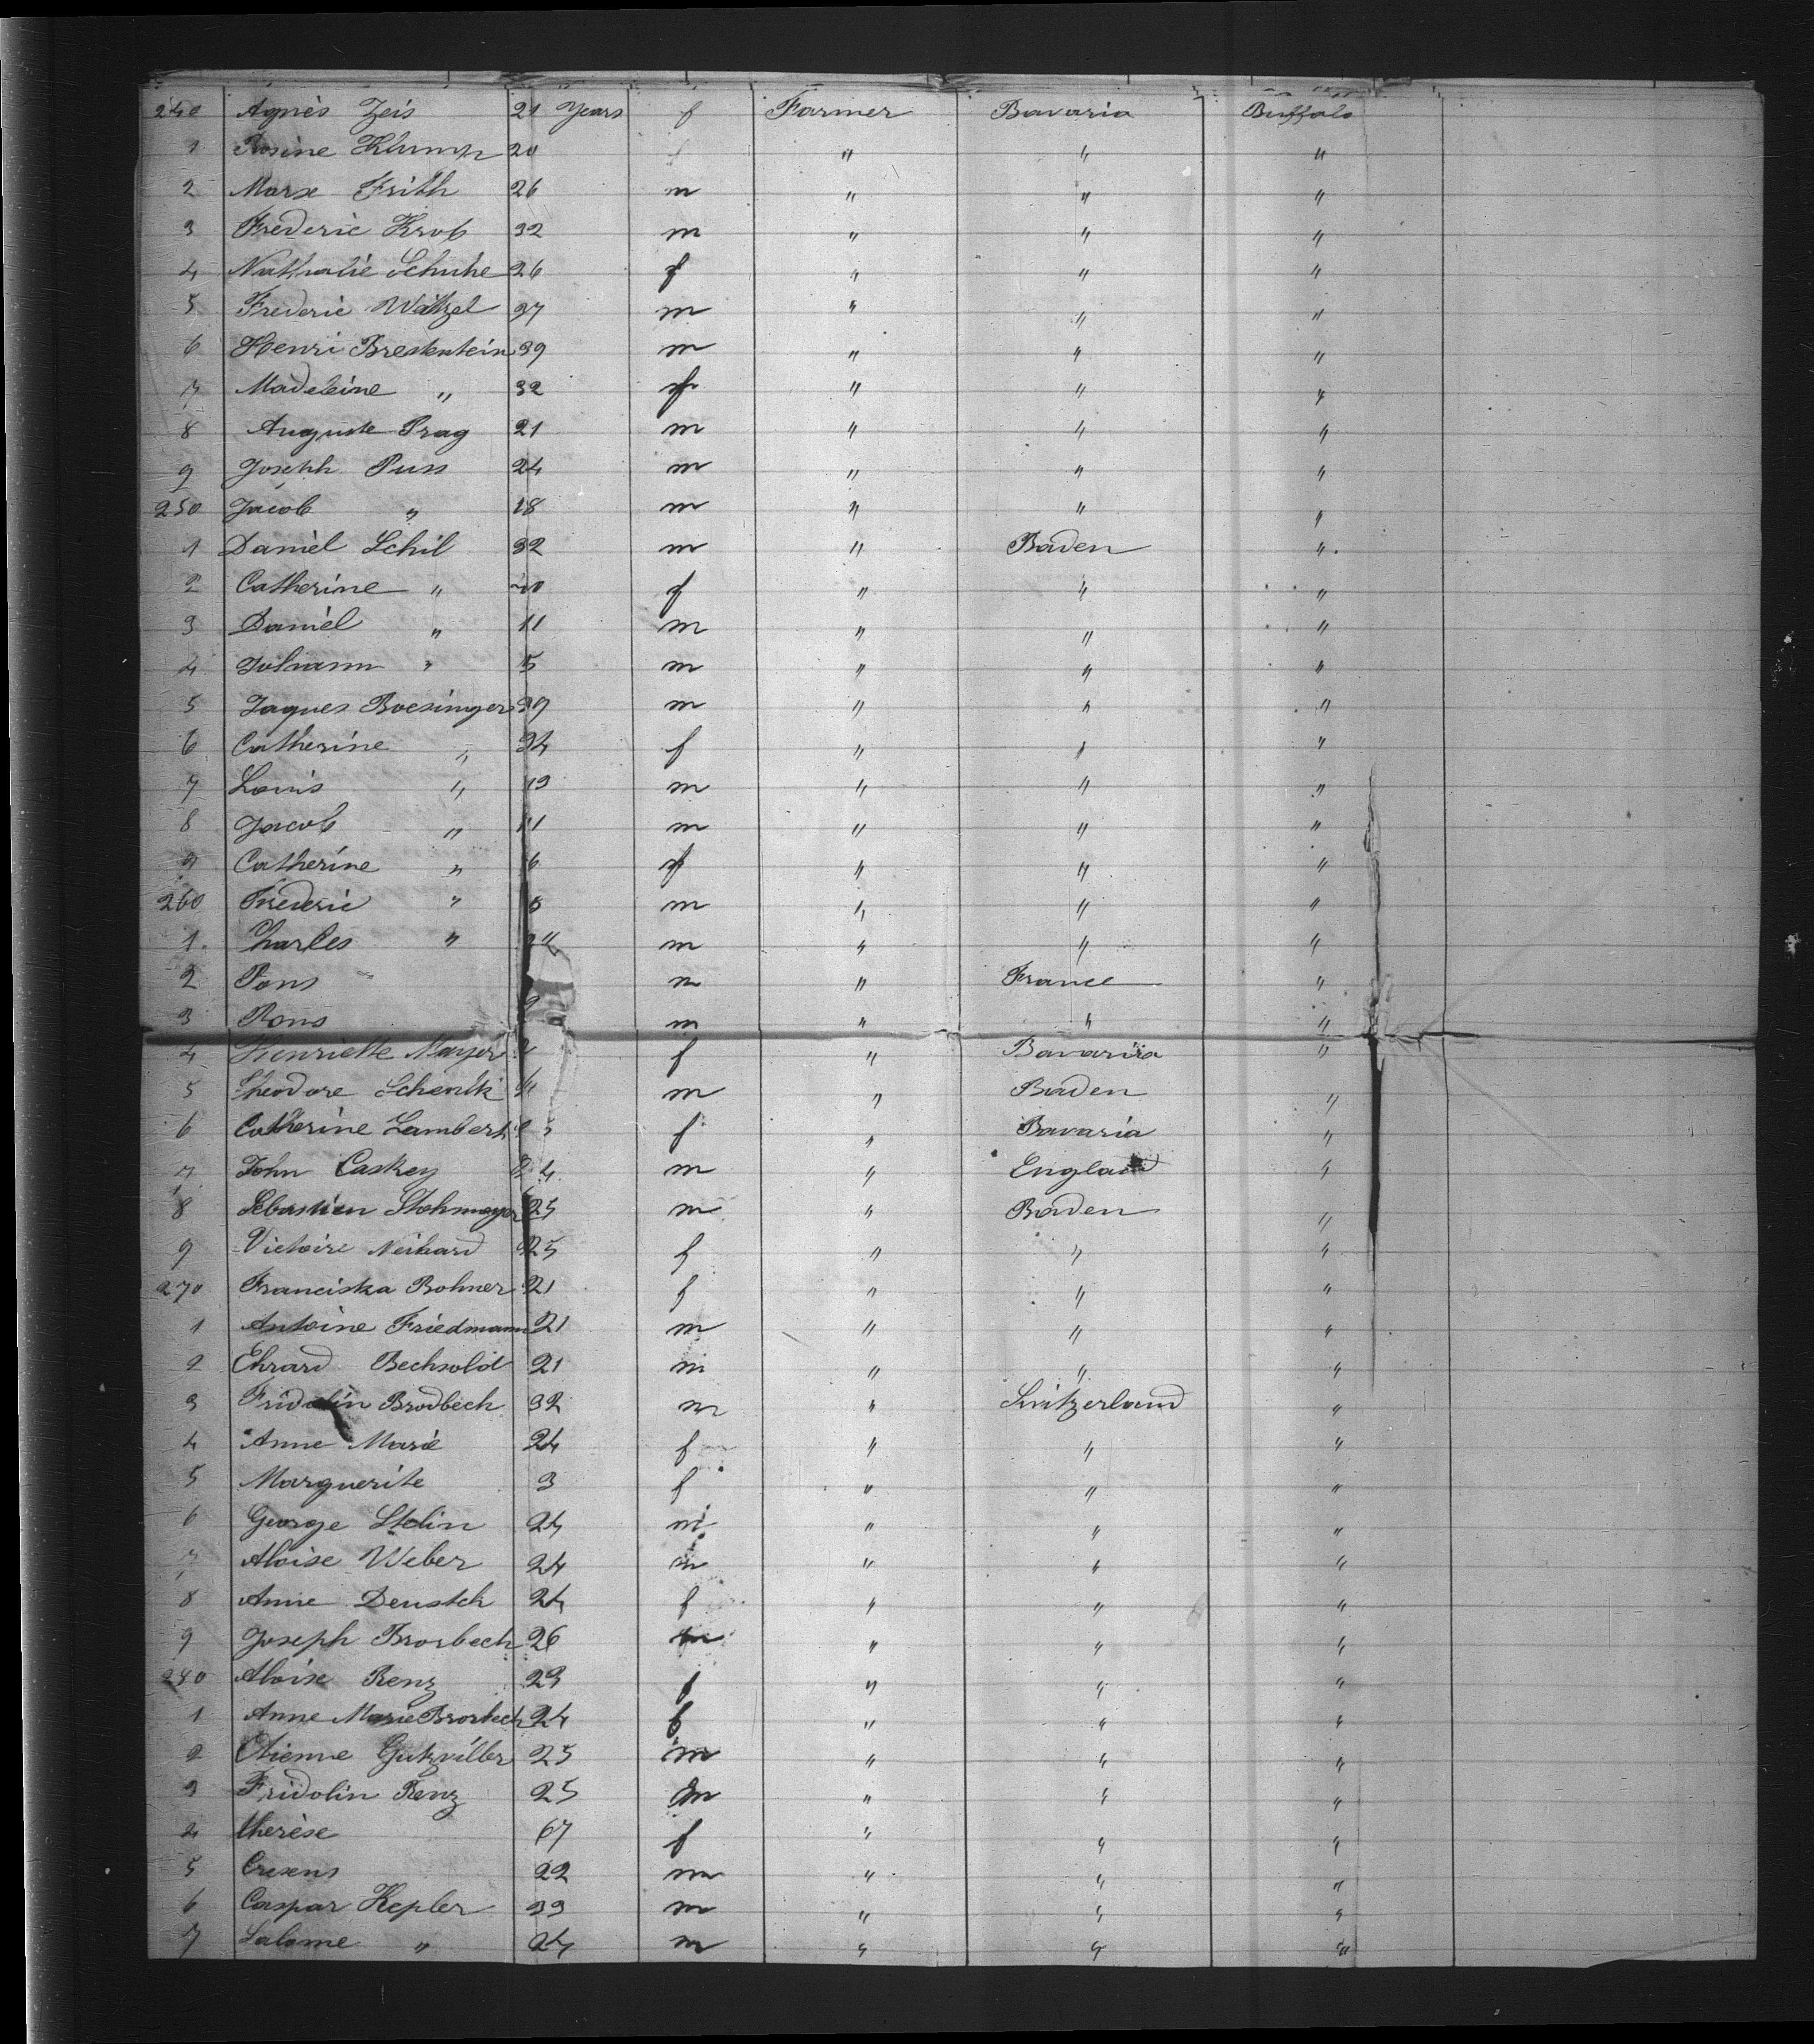 240 Agnès Zeis 21 Years f Farmer Bavaria Buffalo
1 Rosine Klump 20 f " " "
2 Marx Frith 26 m " " "
3 Frederic Krob 32 m " " "
4 Nathalie Schuhe 26 f " " "
5 Frederic Wätzel 37 m " " "
6 Henri Brestentein 39 m " " "
7 Madeleine " 32 f " " "
8 Auguste Prag 21 m " " "
9 Joseph Puss 24 m " " "
250 Jacob " 18 m " " "
1 Daniel Schil 32 m " Baden "
2 Catherine " f " " "
3 Daniel " 11 m " " "
4 Johann " 5 m " " "
5 Jaques Boesinger 39 m " " "
6 Catherine " 34 f " " "
7 Louis " 13 m " " "
8 Jacob " 11 m " " "
9 Catherine " 6 f " " "
260 Frederic " m " " "
1 Charles " m " " "
2 Pons m " France "
3 Pons m " " "
4 Henriette Mayer f " Bavaria "
5 Theodore Schenk m " Baden "
6 Catherine Lambert f " Bavaria "
7 John Caskey m " England "
8 Sebastien Stohmayer 25 m " Baden "
9 Victoire Neihard 25 f " " "
270 Franciska Bohner 21 f " " "
1 Antoine Friedmann 21 m " " "
2 Ehrard Bechsold 21 m " " "
3 Fridolin Brodbech 32 m " Switzerland "
4 Anne Marie 24 f " " "
5 Marguerite 3 f " " "
6 George Stelin 24 m " " "
7 Aloise Weber 24 m " " "
8 Anne Deustch 24 f " " "
9 Joseph Brorbech 26 m " " "
280 Aloise Renz 23 f " " "
1 Anne Marie Brorbech 24 f " " "
2 Etienne Gutzviller 25 m " " "
3 Fridolin Renz 25 m " " "
4 therèse 67 f " " "
5 Cresens 22 m " " "
6 Caspar Kepler 33 m " " "
7 Salome " 24 m " " "